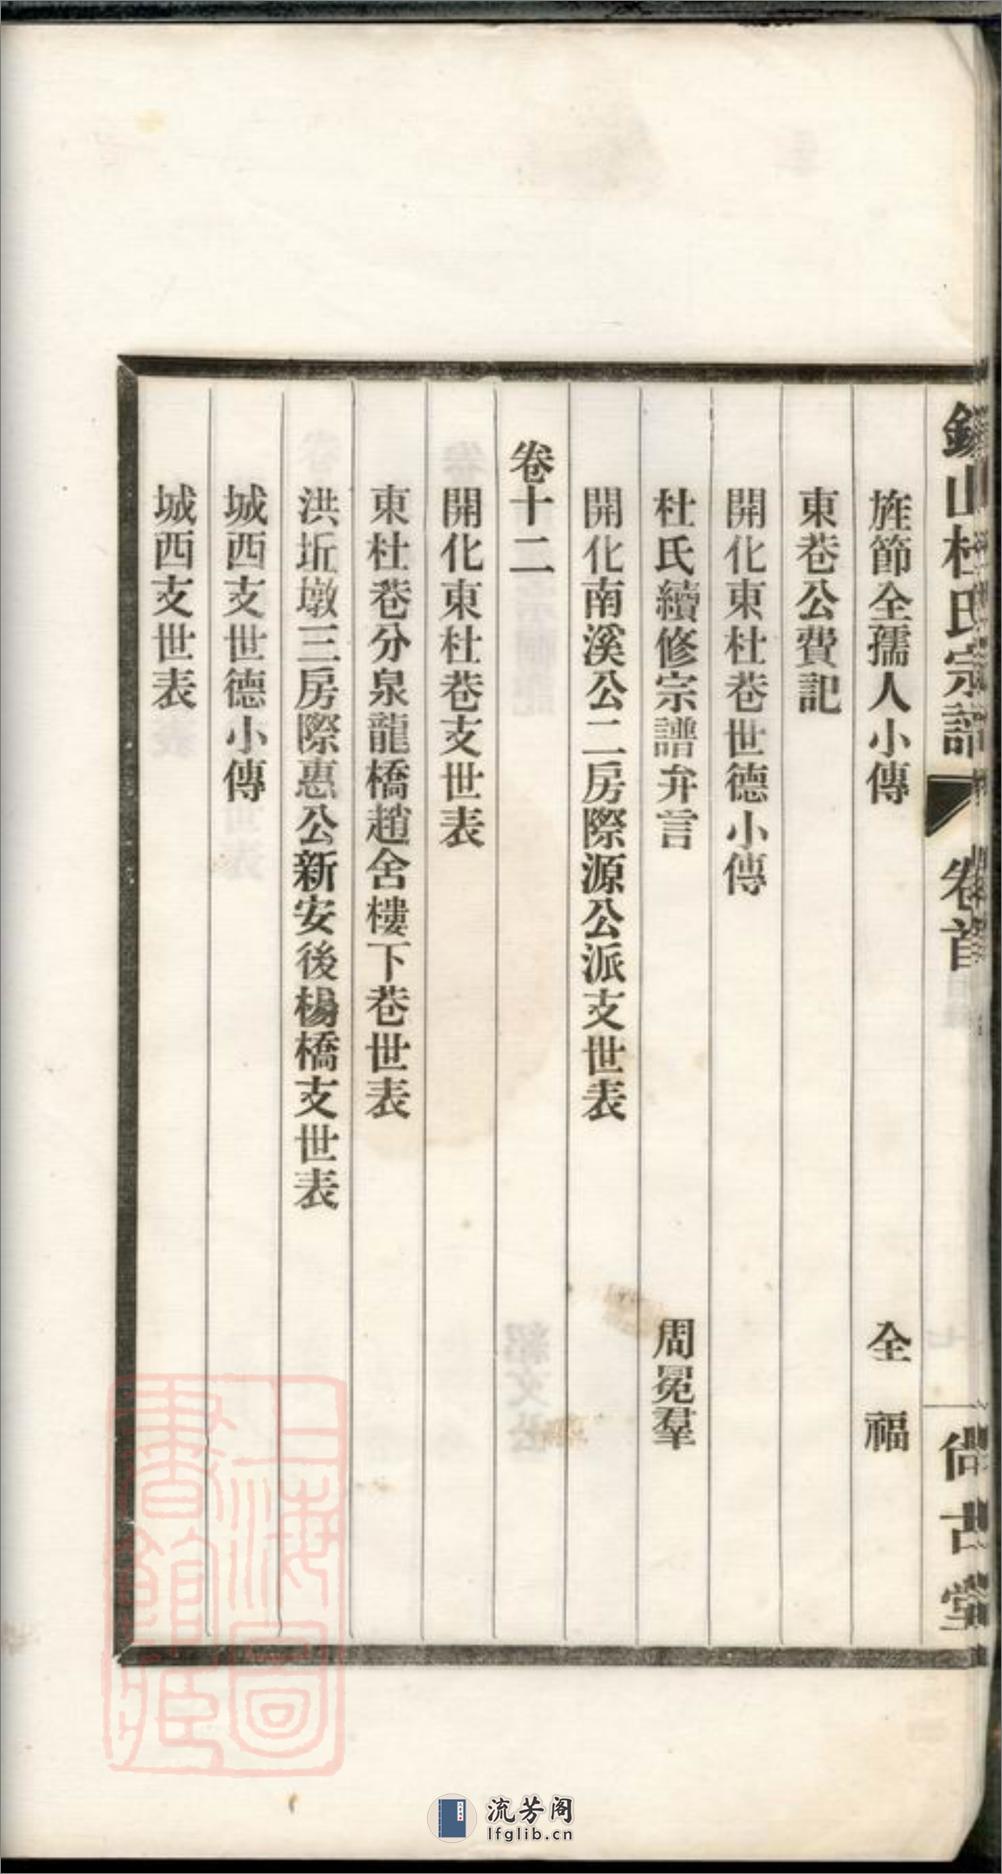 錫山杜氏宗譜 卷首 尙古堂
旌節全孺人小傳 全福
東巷公費記
開化東杜巷世德小傳
杜氏續修宗譜弁言 周冕羣
開化南溪公二房際源公派支世表
卷十二
開化東杜巷支世表
東杜巷分泉龍橋趙舍樓下巷世表
洪坵墩三房際惠公新安後楊橋支世表
城西支世德小傳
城西支世表
上海圖書館藏
流芳阁
lfglib.cn